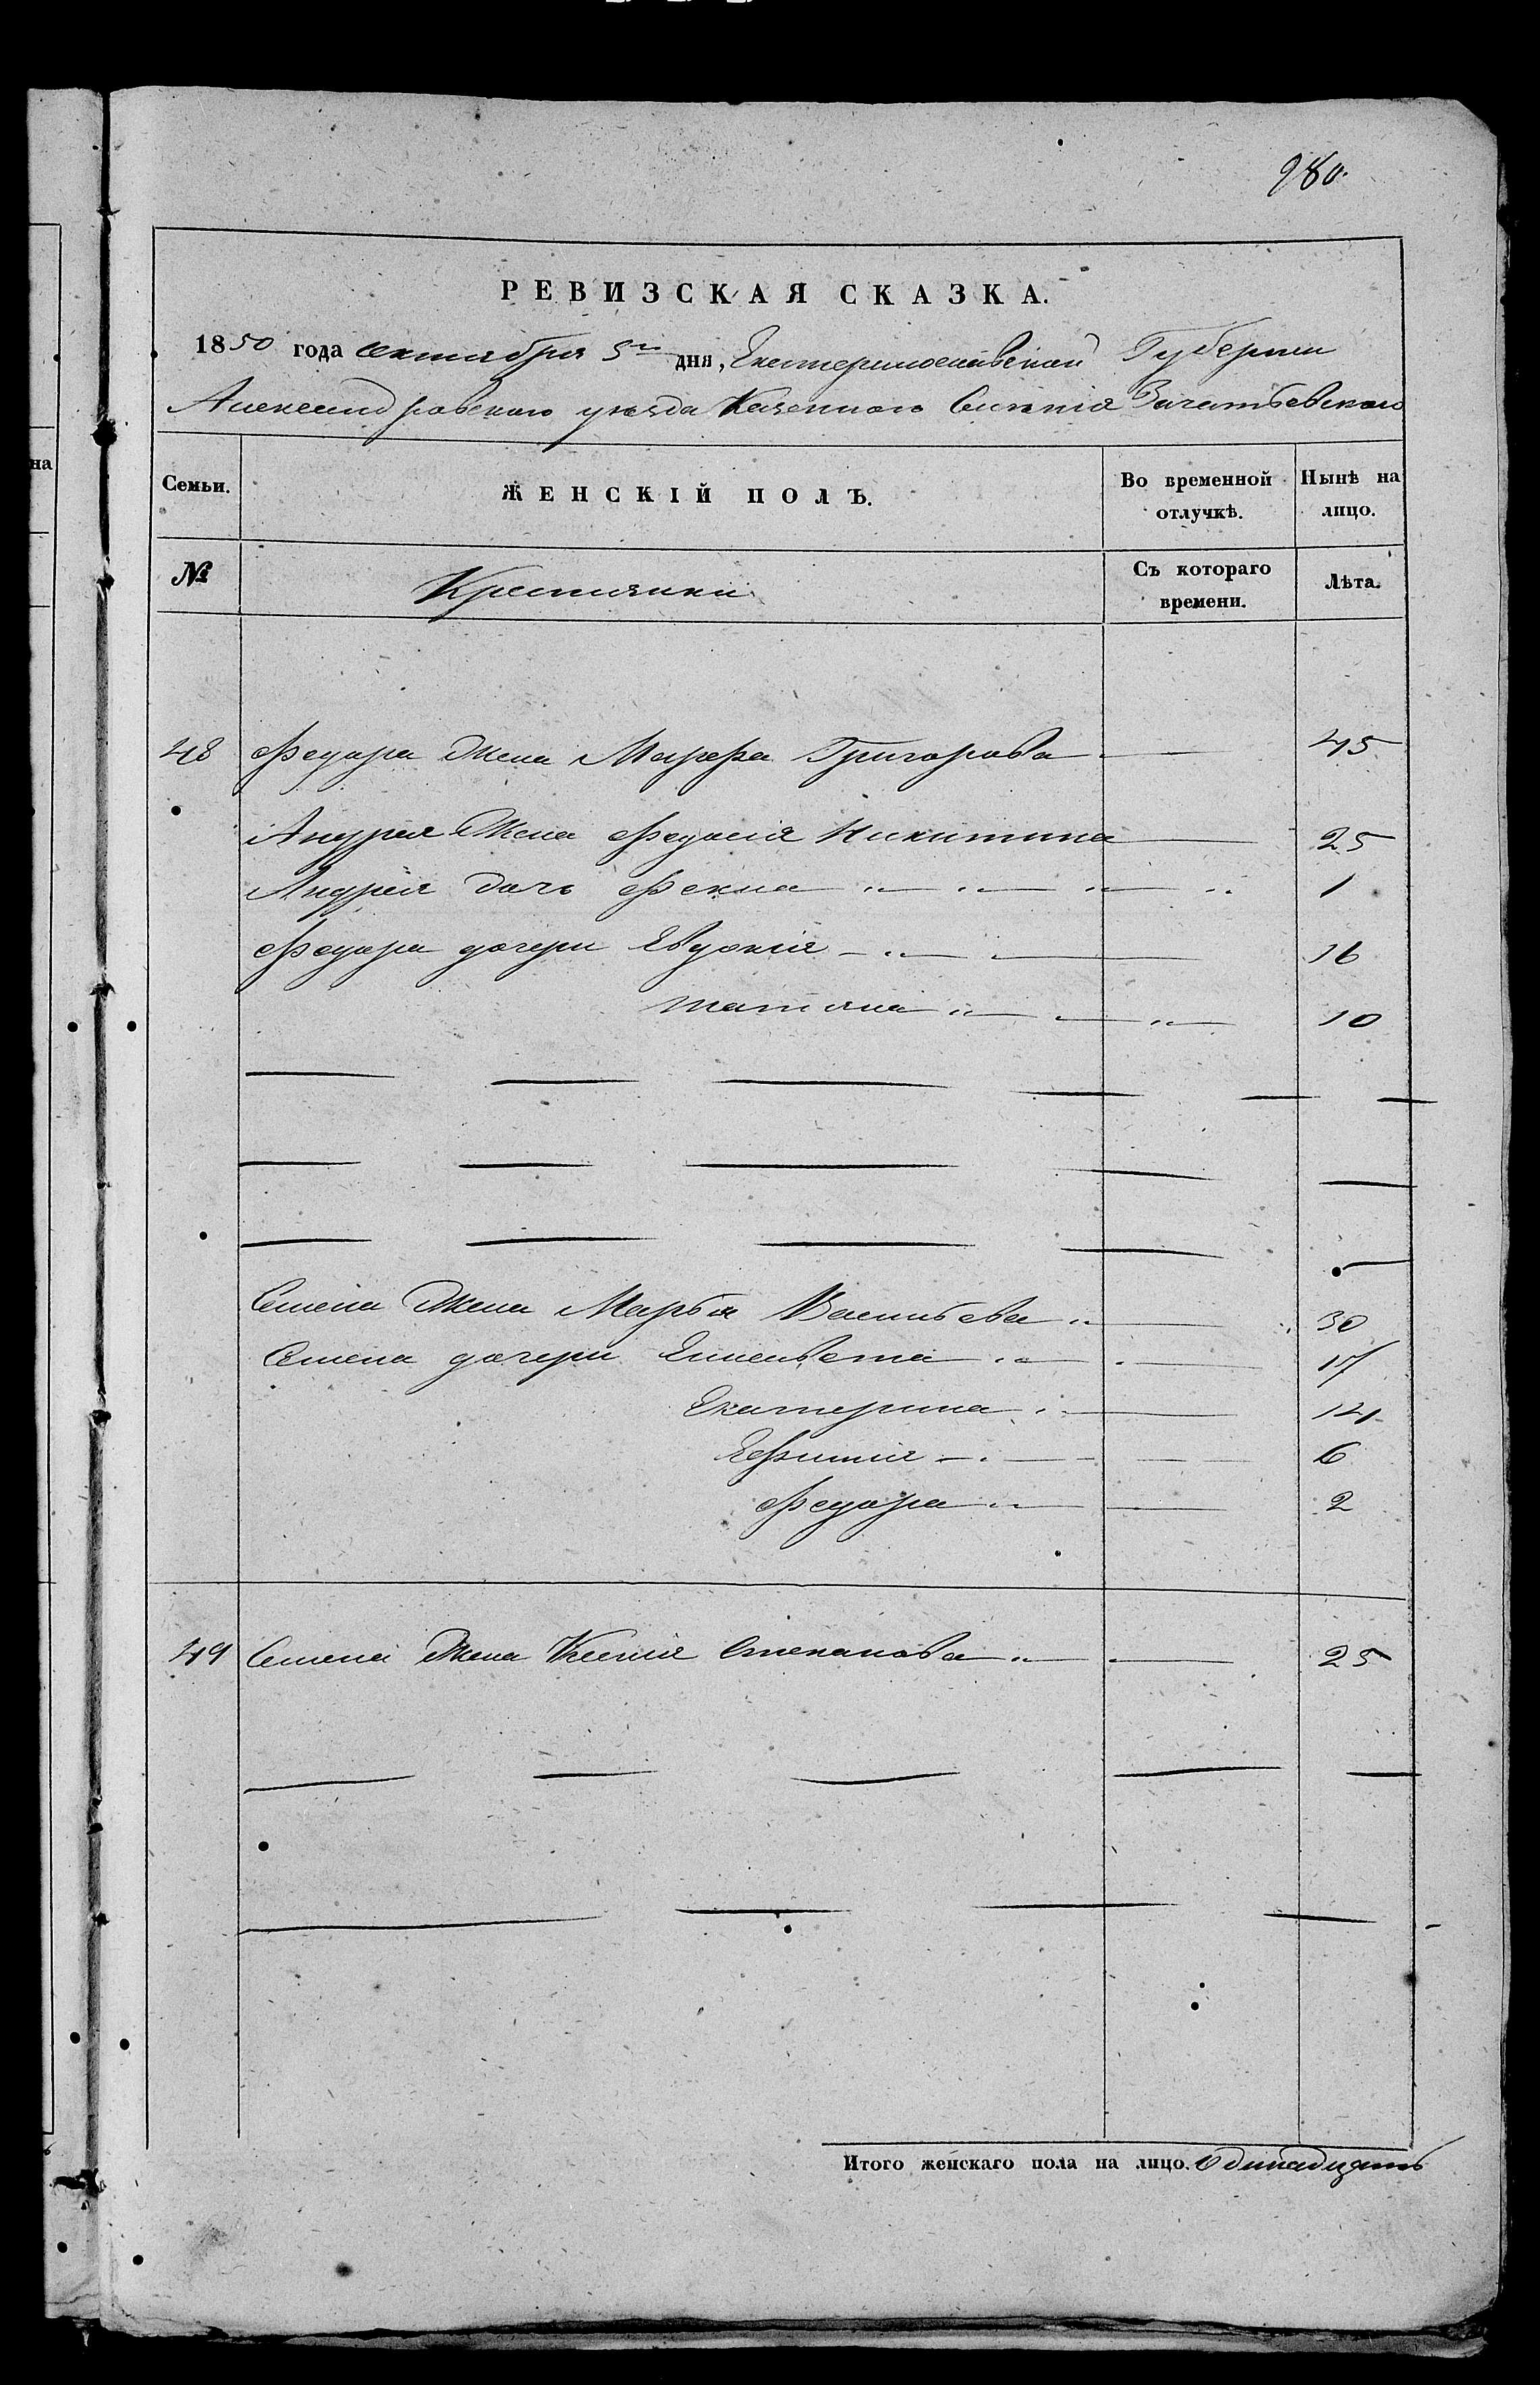 980.
РЕВИЗСКАЯ СКАЗКА.
1850 года сентября 5го дня, Екатеринославской Губернии
Александровского уезда Казенного Селения Зачатьевского
Семьи. ЖЕНСКІЙ ПОЛЪ. Во временной отлучкѣ. Нынѣ на лицо.
№ Крестьянки Съ котораго времени. Лѣта.
на
48 Федора Жена Марфа Григорова 45
Андрея Жена Федосія Никитина 25
Андрея дочь Фекла 1
Федора дочери Евдокія 16
татьяна 10
Семена Жена Марья Васильева 30
Семена дочери Елисавета 17
Екатерина 14
Ефимия 6
Федора 2
49 Семена Жена Ксения Степанова 25
Итого женскаго пола на лицо. Одинадцать